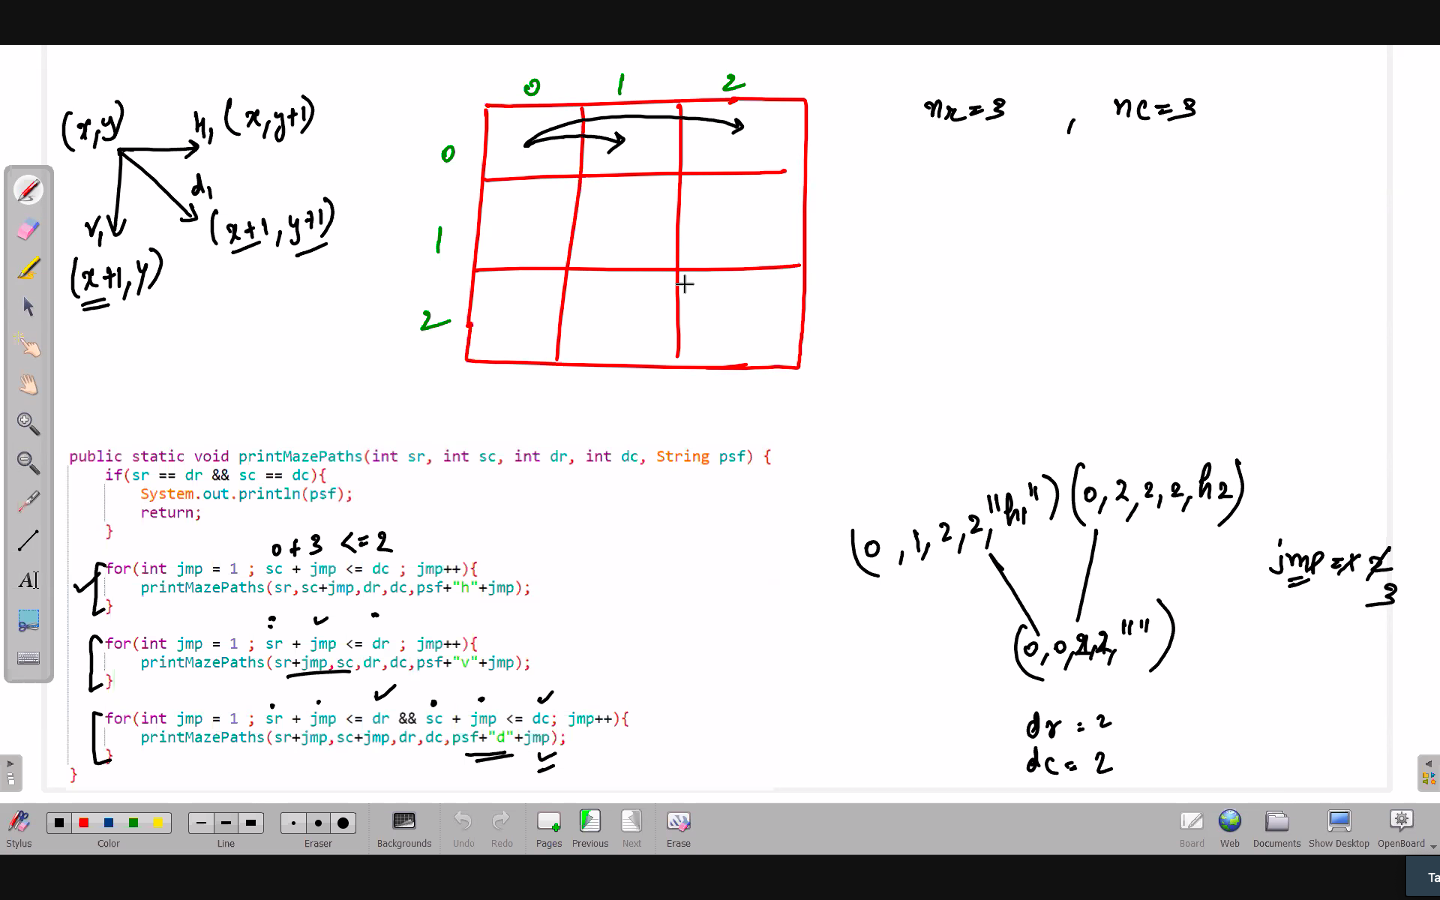 0 1 2
nr=3 , nc=3
(x,y) h1 (x,y+1)
0
d1
v1 (x+1,y+1)
1
(x+1,y)
2
public static void printMazePaths(int sr, int sc, int dr, int dc, String psf) {
if(sr == dr && sc == dc){
System.out.println(psf);
return;
}
0+3 <=2
for(int jmp = 1 ; sc + jmp <= dc ; jmp++){
printMazePaths(sr,sc+jmp,dr,dc,psf+"h"+jmp);
}
for(int jmp = 1 ; sr + jmp <= dr ; jmp++){
printMazePaths(sr+jmp,sc,dr,dc,psf+"v"+jmp);
}
for(int jmp = 1 ; sr + jmp <= dr && sc + jmp <= dc; jmp++){
printMazePaths(sr+jmp,sc+jmp,dr,dc,psf+"d"+jmp);
}
}
(0,1,2,2,"h1") (0,2,2,2,h2)
jmp=1 2
3
(0,0,2,2,"")
dr = 2
dc = 2
Stylus Color Line Eraser Backgrounds Undo Redo Pages Previous Next Erase Board Web Documents Show Desktop OpenBoard
Ta